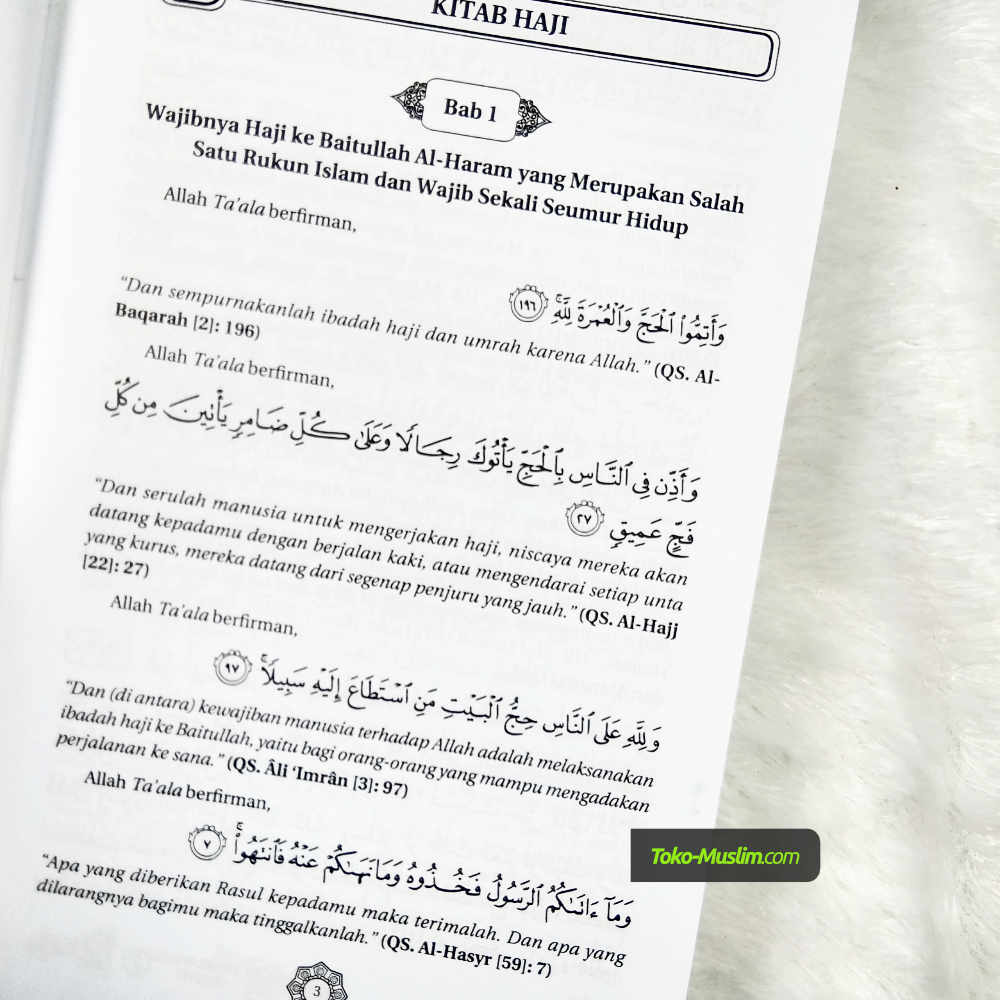 KITAB HAJI
Bab 1
Wajibnya Haji ke Baitullah Al-Haram yang Merupakan Salah
Satu Rukun Islam dan Wajib Sekali Seumur Hidup
Allah Ta'ala berfirman,
وَأَتِمُّوا۟ ٱلْحَجَّ وَٱلْعُمْرَةَ لِلَّهِ ۚ ١٩٦
“Dan sempurnakanlah ibadah haji dan umrah karena Allah.” (QS. Al-
Baqarah [2]: 196)
Allah Ta'ala berfirman,
وَأَذِّن فِى ٱلنَّاسِ بِٱلْحَجِّ يَأْتُوكَ رِجَالًا وَعَلَىٰ كُلِّ ضَامِرٍ يَأْتِينَ مِن كُلِّ
فَجٍّ عَمِيقٍ ٢٧
“Dan serulah manusia untuk mengerjakan haji, niscaya mereka akan
datang kepadamu dengan berjalan kaki, atau mengendarai setiap unta
yang kurus, mereka datang dari segenap penjuru yang jauh.” (QS. Al-Hajj
[22]: 27)
Allah Ta'ala berfirman,
وَلِلَّهِ عَلَى ٱلنَّاسِ حِجُّ ٱلْبَيْتِ مَنِ ٱسْتَطَاعَ إِلَيْهِ سَبِيلًا ۚ ٩٧
“Dan (di antara) kewajiban manusia terhadap Allah adalah melaksanakan
ibadah haji ke Baitullah, yaitu bagi orang-orang yang mampu mengadakan
perjalanan ke sana.” (QS. Âli ‘Imrân [3]: 97)
Allah Ta'ala berfirman,
وَمَآ ءَاتَىٰكُمُ ٱلرَّسُولُ فَخُذُوهُ وَمَا نَهَىٰكُمْ عَنْهُ فَٱنتَهُوا۟ ۚ ٧
“Apa yang diberikan Rasul kepadamu maka terimalah. Dan apa yang
dilarangnya bagimu maka tinggalkanlah.” (QS. Al-Hasyr [59]: 7)
3
Toko-Muslim.com